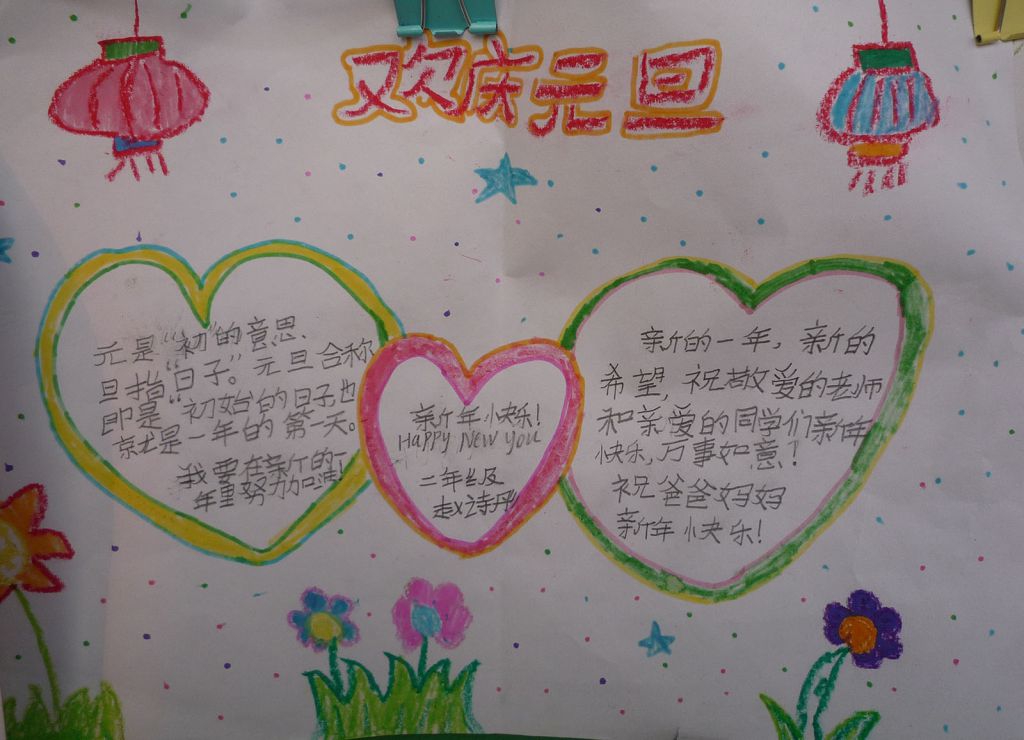 欢庆元旦
元是“初”的意思、
旦指“日子”。元旦合称
即是“初始的日子也
就是一年的第一天。
我要在新的一
年里努力加油!
新年快乐!
HAPPY New you
二年级
赵诗丹
新的一年，新的
希望，祝敬爱的老师
和亲爱的同学们新年
快乐，万事如意!
祝爸爸妈妈
新年快乐!